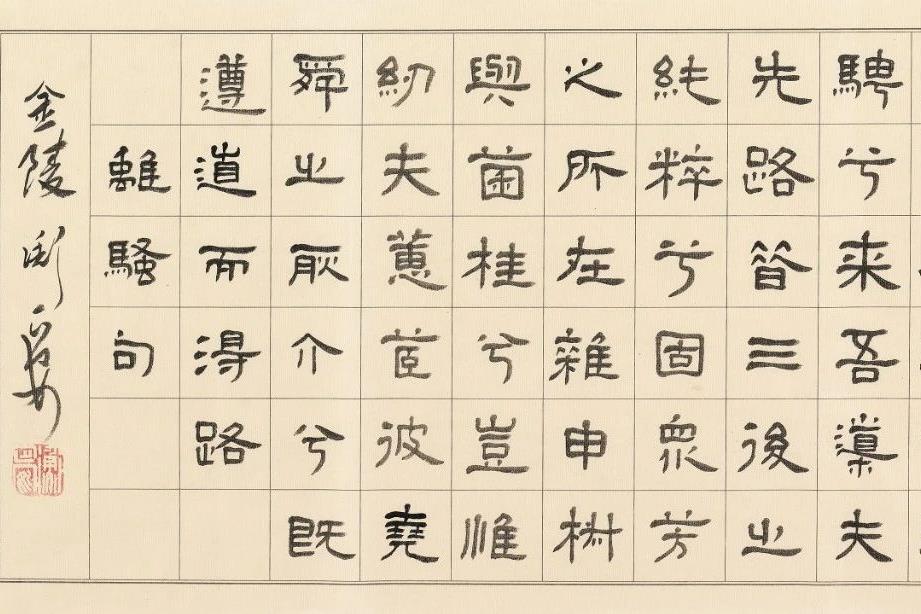 騁兮来吾導夫
先路昔三後之
純粹兮固眾芳
之所在雜申椒
與菌桂兮豈惟
紉夫蕙茝彼堯
舜之耿介兮既
遵道而得路
離騷句
金陵